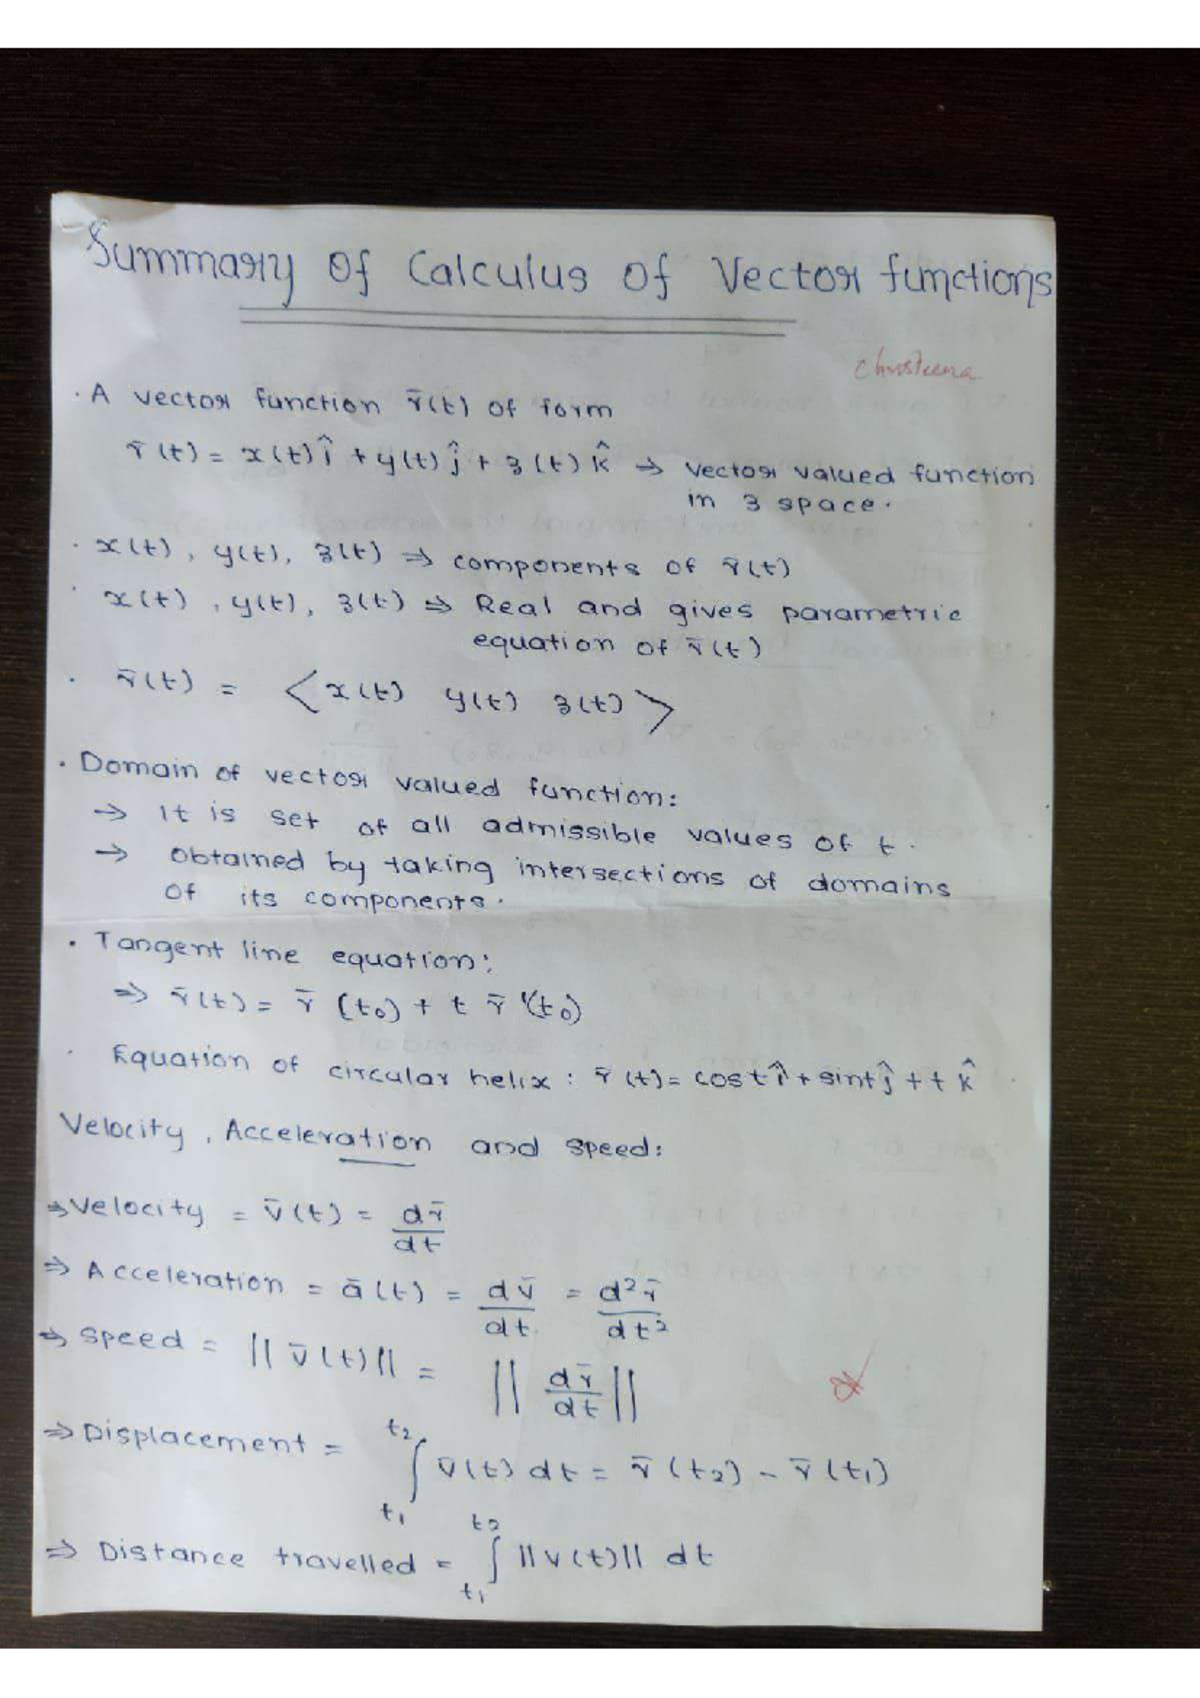 Summary Of Calculus Of Vector functions
Christeena
· A vector function r̄(t) of form
r̄(t) = x(t)î + y(t)ĵ + z(t)k̂ ⇒ vector valued function
in 3 space.
· x(t), y(t), z(t) ⇒ components of r̄(t)
· x(t), y(t), z(t) ⇒ Real and gives parametric
equation of r̄(t)
· r̄(t) = < x(t) y(t) z(t) >
· Domain of vector valued function:
→ It is set of all admissible values of t.
→ Obtained by taking intersections of domains
of its components.
· Tangent line equation:
⇒ r̄(t) = r̄(t₀) + t r̄'(t₀)
· Equation of circular helix : r̄(t) = cost î + sint ĵ + t k̂
Velocity, Acceleration and speed:
⇒ Velocity = v̄(t) = dr̄/dt
⇒ Acceleration = ā(t) = dv̄/dt = d²r̄/dt²
⇒ speed = ||v̄(t)|| = ||dr̄/dt||
⇒ Displacement = ∫_{t₁}^{t₂} v̄(t) dt = r̄(t₂) - r̄(t₁)
⇒ Distance travelled = ∫_{t₁}^{t₂} ||v(t)|| dt